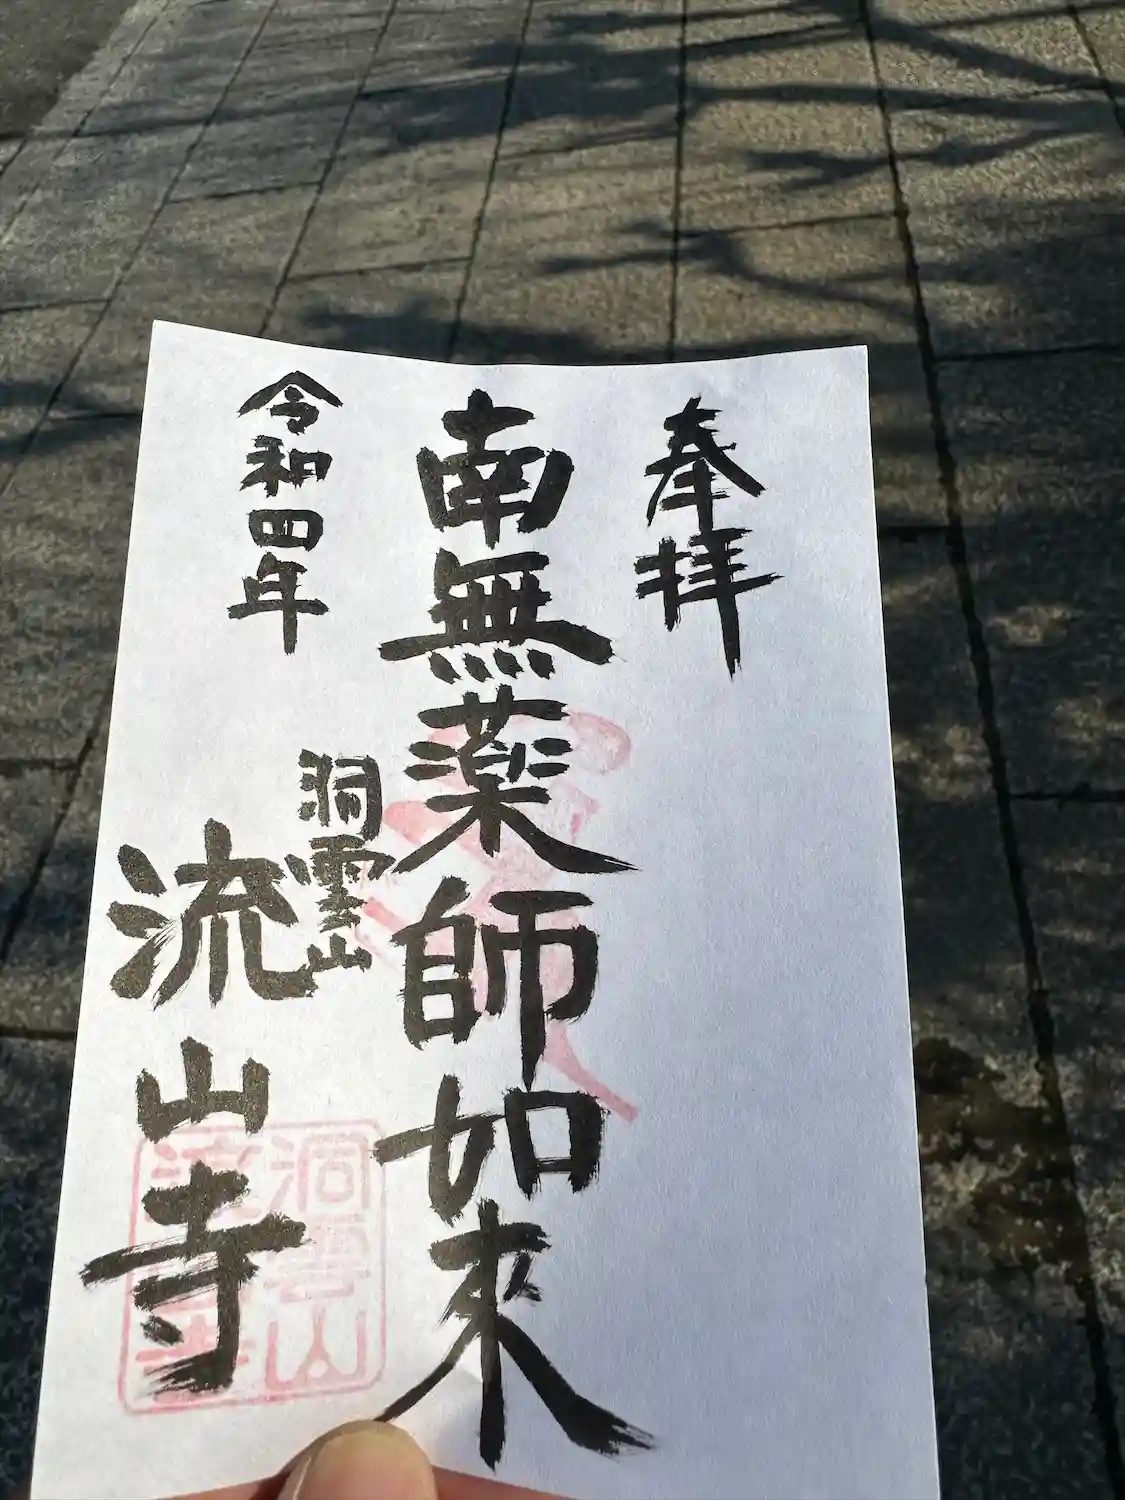 奉拝
南無薬師如来
洞雲山
流山寺
令和四年
洞雲山
流山寺